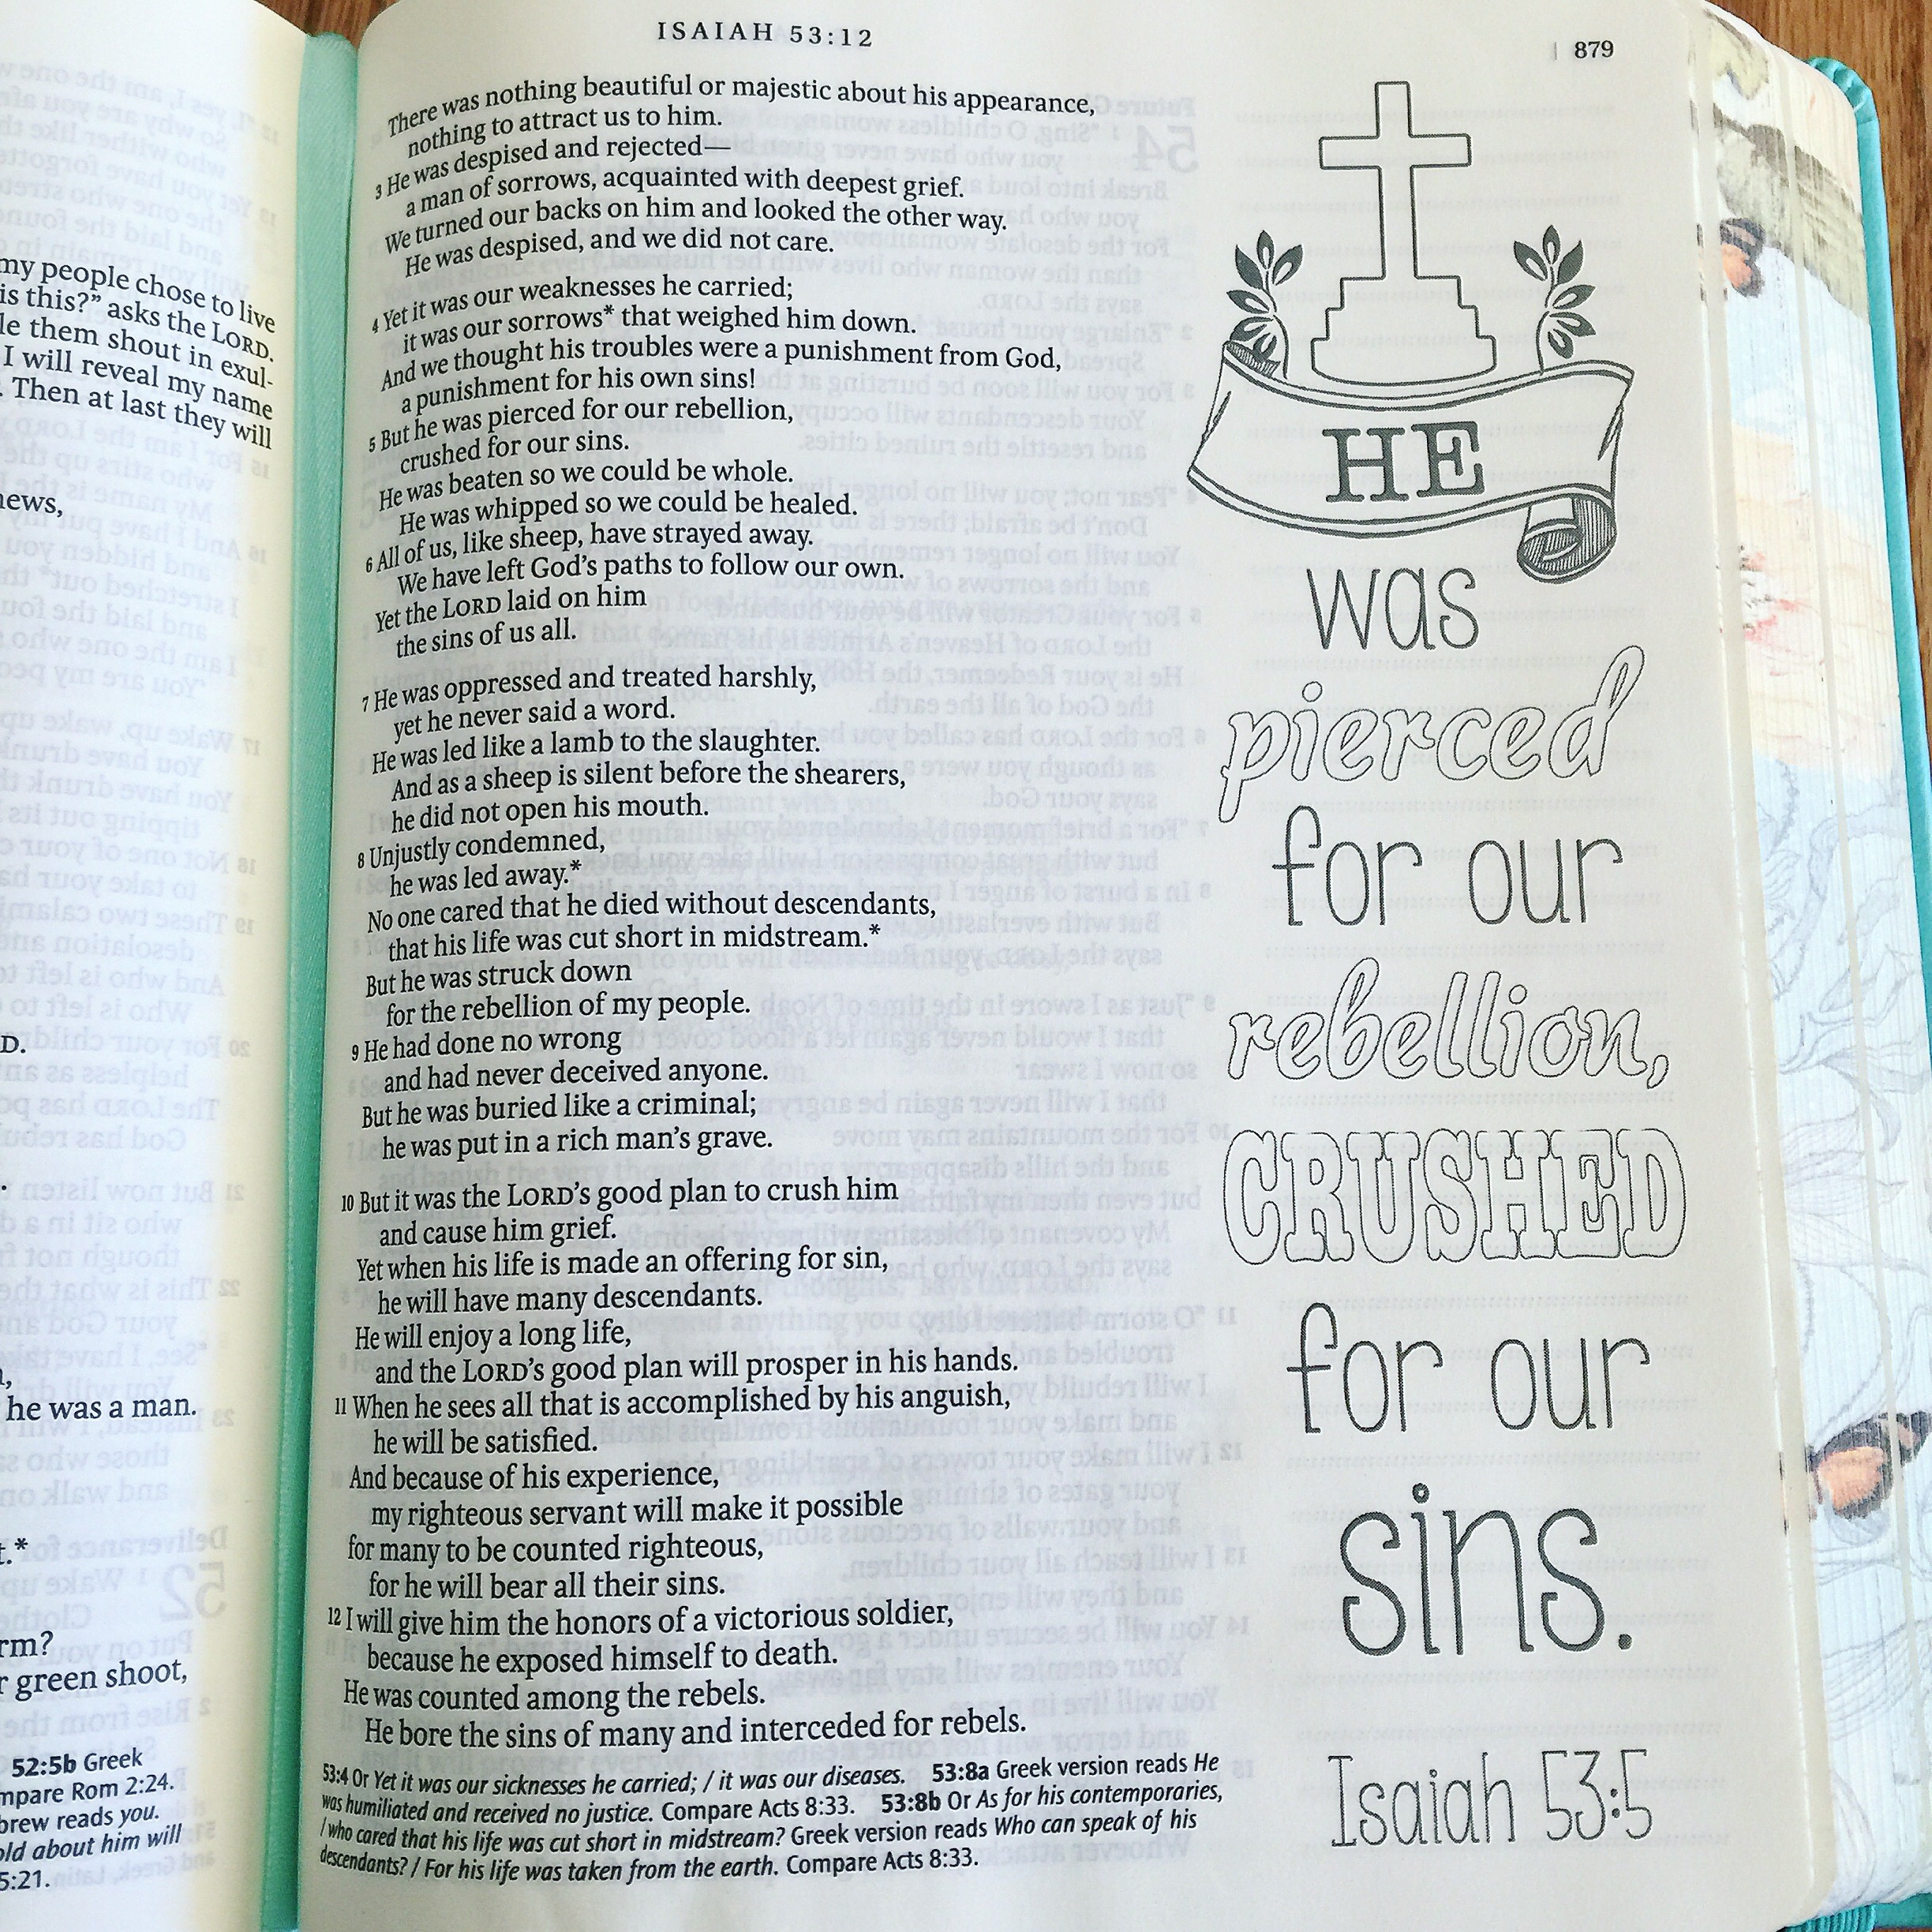 my people chose to live
is this?” asks the LORD.
them shout in exul-
I will reveal my name
Then at last they will
he was a man.
green shoot,
52:5b Greek
Rom 2:24.
reads you.
about him will
5:21.
ISAIAH 53:12
879
There was nothing beautiful or majestic about his appearance,
nothing to attract us to him.
3 He was despised and rejected—
a man of sorrows, acquainted with deepest grief.
We turned our backs on him and looked the other way.
He was despised, and we did not care.
4 Yet it was our weaknesses he carried;
it was our sorrows* that weighed him down.
And we thought his troubles were a punishment from God,
a punishment for his own sins!
5 But he was pierced for our rebellion,
crushed for our sins.
He was beaten so we could be whole.
He was whipped so we could be healed.
6 All of us, like sheep, have strayed away.
We have left God’s paths to follow our own.
Yet the LORD laid on him
the sins of us all.
7 He was oppressed and treated harshly,
yet he never said a word.
He was led like a lamb to the slaughter.
And as a sheep is silent before the shearers,
he did not open his mouth.
8 Unjustly condemned,
he was led away.*
No one cared that he died without descendants,
that his life was cut short in midstream.*
But he was struck down
for the rebellion of my people.
9 He had done no wrong
and had never deceived anyone.
But he was buried like a criminal;
he was put in a rich man’s grave.
10 But it was the LORD’s good plan to crush him
and cause him grief.
Yet when his life is made an offering for sin,
he will have many descendants.
He will enjoy a long life,
and the LORD’s good plan will prosper in his hands.
11 When he sees all that is accomplished by his anguish,
he will be satisfied.
And because of his experience,
my righteous servant will make it possible
for many to be counted righteous,
for he will bear all their sins.
12 I will give him the honors of a victorious soldier,
because he exposed himself to death.
He was counted among the rebels.
He bore the sins of many and interceded for rebels.
53:4 Or Yet it was our sicknesses he carried; / it was our diseases. 53:8a Greek version reads He
was humiliated and received no justice. Compare Acts 8:33. 53:8b Or As for his contemporaries,
/ who cared that his life was cut short in midstream? Greek version reads Who can speak of his
descendants? / For his life was taken from the earth. Compare Acts 8:33.
HE
was
pierced
for our
rebellion,
CRUSHED
for our
sins.
Isaiah 53:5